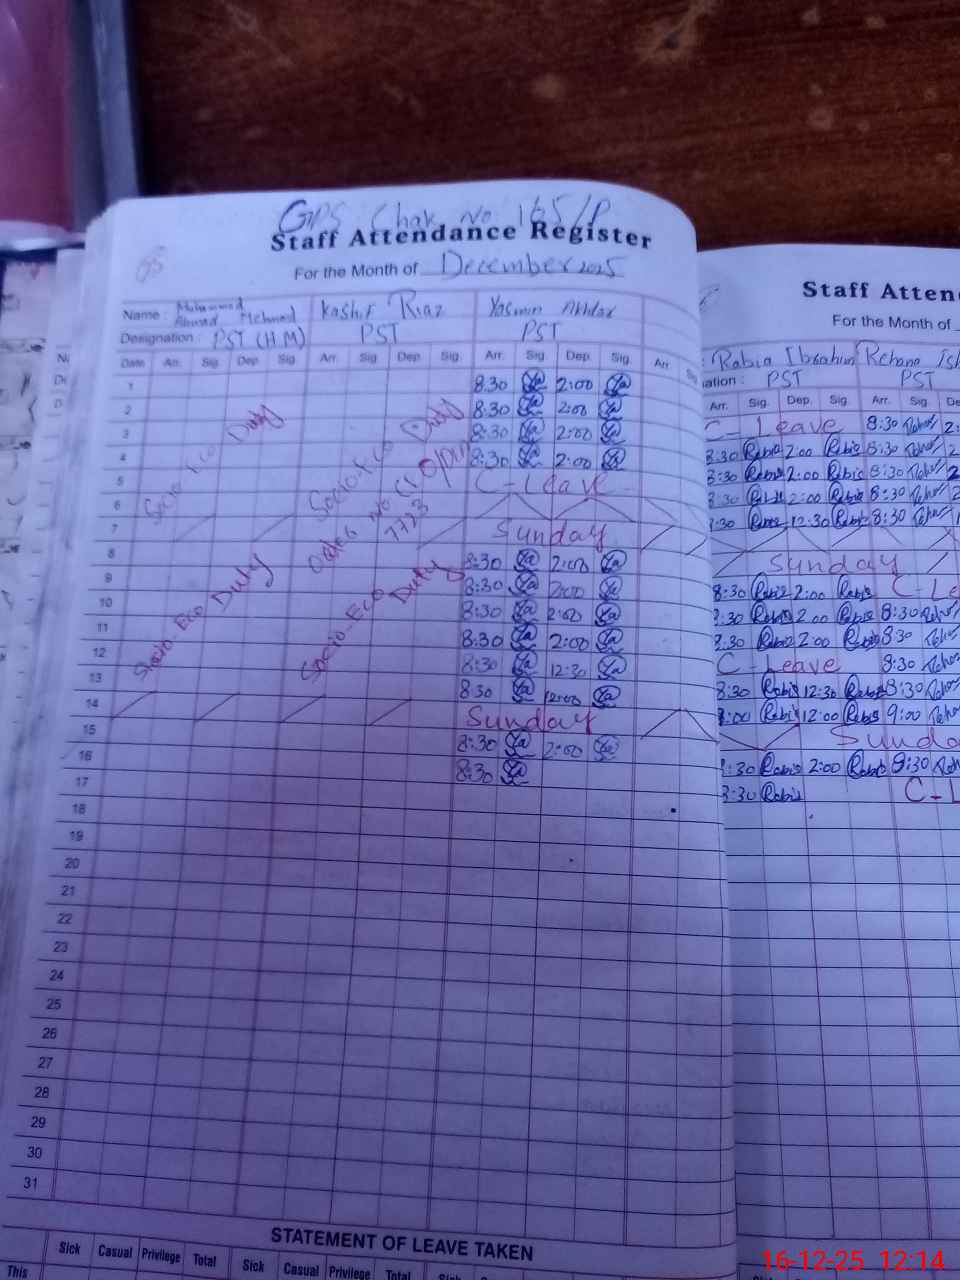 GPS Chak No 165/P
Staff Attendance Register
For the Month of December 2025
Name : Muhammad Ahmad Mehmood Kashif Riaz Yasmin Akhtar
Designation : PST (H.M) PST PST
Date Arr. Sig. Dep. Sig. Arr. Sig. Dep. Sig. Arr. Sig. Dep. Sig. Arr. Sig.
1 8:30 Ya 2:00 Ya
2 8:30 Ya 2:00 Ya
3 8:30 Ya 2:00 Ya
4 8:30 Ya 2:00 Ya
5 C-Leave
6
7 Sunday
8 8:30 Ya 2:00 Ya
9 8:30 Ya 2:00 Ya
10 8:30 Ya 2:00 Ya
11 8:30 Ya 2:00 Ya
12 8:30 Ya 12:30 Ya
13 8:30 Ya 12:00 Ya
14 Sunday
15 8:30 Ya 2:00 Ya
16 8:30 Ya
17
18
19
20
21
22
23
24
25
26
27
28
29
30
31
Socio Eco Duty
Socio-Eco Duty
Order No
7723
Socio-Eco Duty
Socio-Eco Duty
STATEMENT OF LEAVE TAKEN
Sick Casual Privilege Total Sick Casual Privilege Total Sick
This
Staff Atten
For the Month of
Rabia Ibrahim Rehana
ation : PST PST
Arr. Sig. Dep. Sig. Arr. Sig. De
C-Leave 8:30 2:
8:30 Rabia 2:00 Rabia 8:30 2
8:30 Rabia 2:00 Rabia 8:30 2
8:30 Rabia 2:00 Rabia 8:30 2
8:30 Rabia 12:30 Rabia 8:30 1
Sunday
8:30 Rabia 2:00 Rabia C-Le
8:30 Rabia 2:00 Rabia 8:30
8:30 Rabia 2:00 Rabia 8:30
C-Leave 8:30
8:30 Rabia 12:30 Rabia 8:30
9:00 Rabia 12:00 Rabia 9:00
Sunda
8:30 Rabia 2:00 Rabia 8:30
8:30 Rabia C-L
16-12-25 12:14